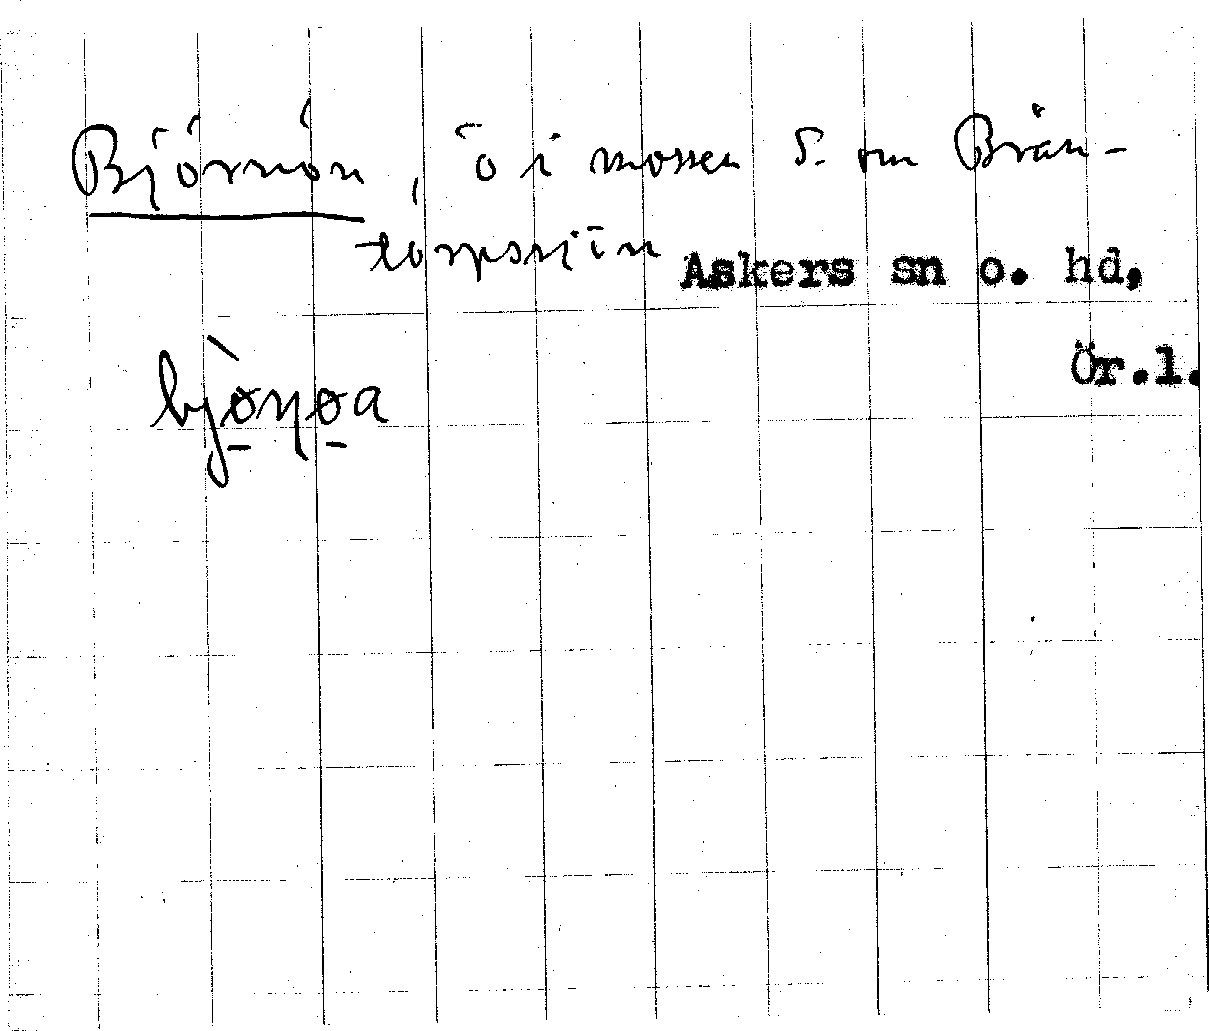 Björnön, ö i mossen S. om Brän-
torpssjön Askers sn o. hd,
Ör.l.
bjø̠̀ŋø̠a